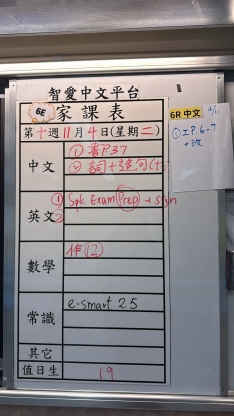 智愛中文平台
6E 家課表
第十週11月4日(星期二)
中文 ① 書P.37
② 詞+造句(十)
英文 ① Spk Exam(Prep) + sign
數學 作(12)
常識 e-smart 2.5
其它
值日生 19
6R 中文 4/11
① 工P.6-7
+改